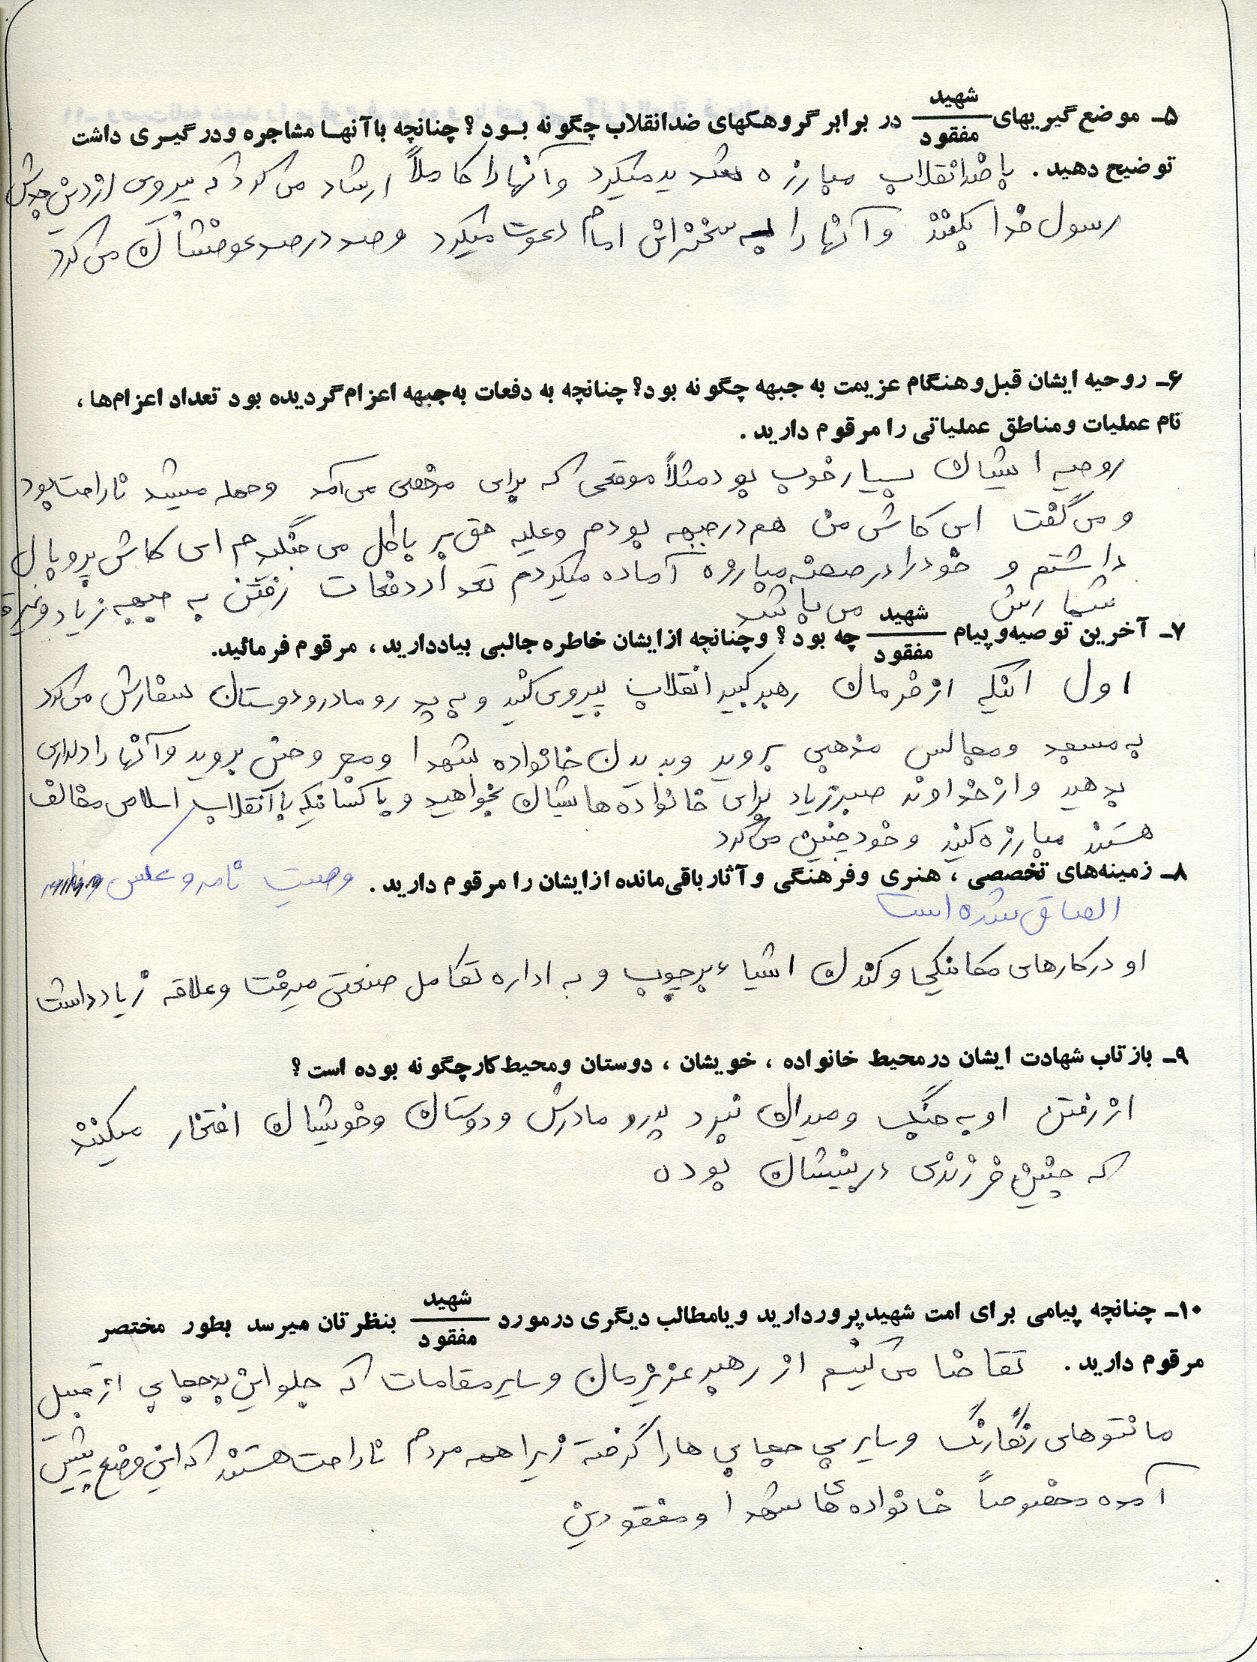 ۵ـ موضع گیریهای شهید/مفقود در برابر گروهکهای ضدانقلاب چگونه بود؟ چنانچه باآنها مشاجره ودرگیری داشت
توضیح دهید. با ضدانقلاب مبارزه شدید میکرد وآنها را کاملاً ارشاد می کرد که پیروی از دین جدش
رسول خدا بکنند وآنها را به سخنرانی امام دعوت میکرد وصد درصد عوضشان می کرد
۶ـ روحیه ایشان قبل وهنگام عزیمت به جبهه چگونه بود؟ چنانچه به دفعات به جبهه اعزام گردیده بود تعداد اعزام ها،
نام عملیات ومناطق عملیاتی را مرقوم دارید.
روحیه ایشان بسیار خوب بود مثلاً موقعی که برای مرخصی می آمد وحمله میشد ناراحت بود
و می گفت ای کاش من هم در جبهه بودم وعلیه حق بر باطل می جنگیدم ای کاش پر و بال
داشتم و خود را در صحنه مبارزه آماده میکردم تعداد دفعات رفتن به جبهه زیاد وغیره
شمارش می باشد
۷ـ آخرین توصیه وپیام شهید/مفقود چه بود؟ وچنانچه ازایشان خاطره جالبی بیاددارید، مرقوم فرمائید.
اول اینکه از فرمان رهبر کبیر انقلاب پیروی کنید و به پدر و مادر و دوستان سفارش می کرد
به مسجد ومجالس مذهبی بروید وبدیدن خانواده شهدا ومجروحین بروید وآنها را دلداری
بدهید و از خداوند صبر زیاد برای خانواده هایشان بخواهید و با کسانیکه با انقلاب اسلامی مخالف
هستند مبارزه کنید وخود چنین می کرد
۸ـ زمینه های تخصصی، هنری وفرهنگی وآثار باقی مانده ازایشان را مرقوم دارید. وصیت نامه و عکس
الصاق شده است
او در کارهای مکانیکی و کندن اشیاء بر چوب و به اداره تکامل صنعتی میرفت وعلاقه زیاد داشت
۹ـ بازتاب شهادت ایشان درمحیط خانواده، خویشان، دوستان ومحیط کارچگونه بوده است؟
از رفتن او به جنگ و میدان نبرد پدر و مادرش ودوستان وخویشان افتخار میکنند
که چنین فرزندی در بینشان بوده
۱۰ـ چنانچه پیامی برای امت شهیدپرور دارید ویامطالب دیگری درمورد شهید/مفقود بنظرتان میرسد بطور مختصر
مرقوم دارید. تقاضا می کنیم از رهبر عزیزمان وسایر مقامات که جلو این بدحجابی از قبیل
مانتوهای رنگارنگ وسایر بی حجابی ها را گرفته زیرا همه مردم ناراحت هستند که این وضع پیش
آمده مخصوصاً خانواده های شهدا ومفقودین